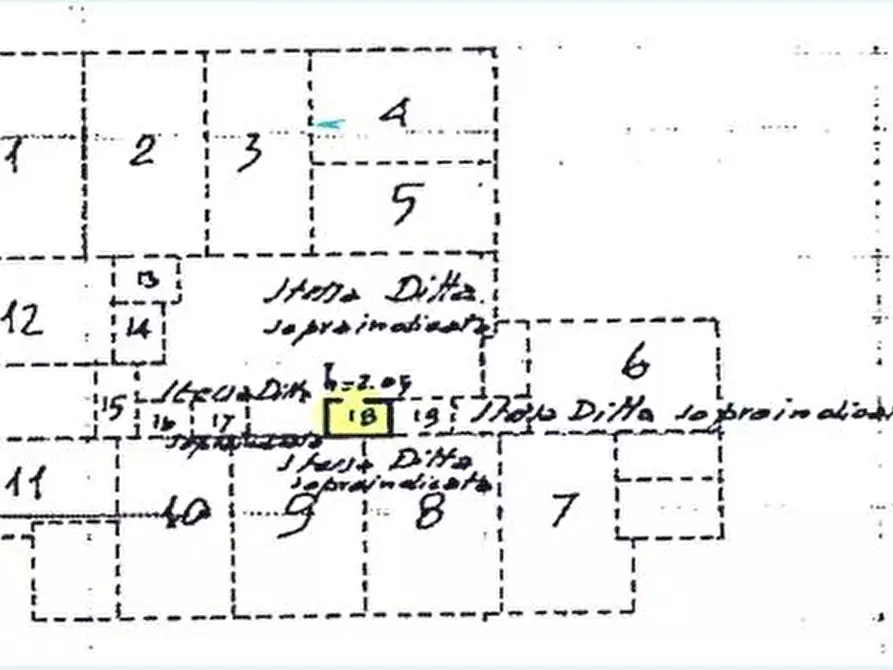 4
1 2 3
5
13
Stessa Ditta
12 14
sopraindicata
6
h=2.05
Stessa Ditta
15 16 17 18 19
Stessa Ditta sopraindicat
sopraindicata
Stessa Ditta
11
sopraindicata
10 9 8 7